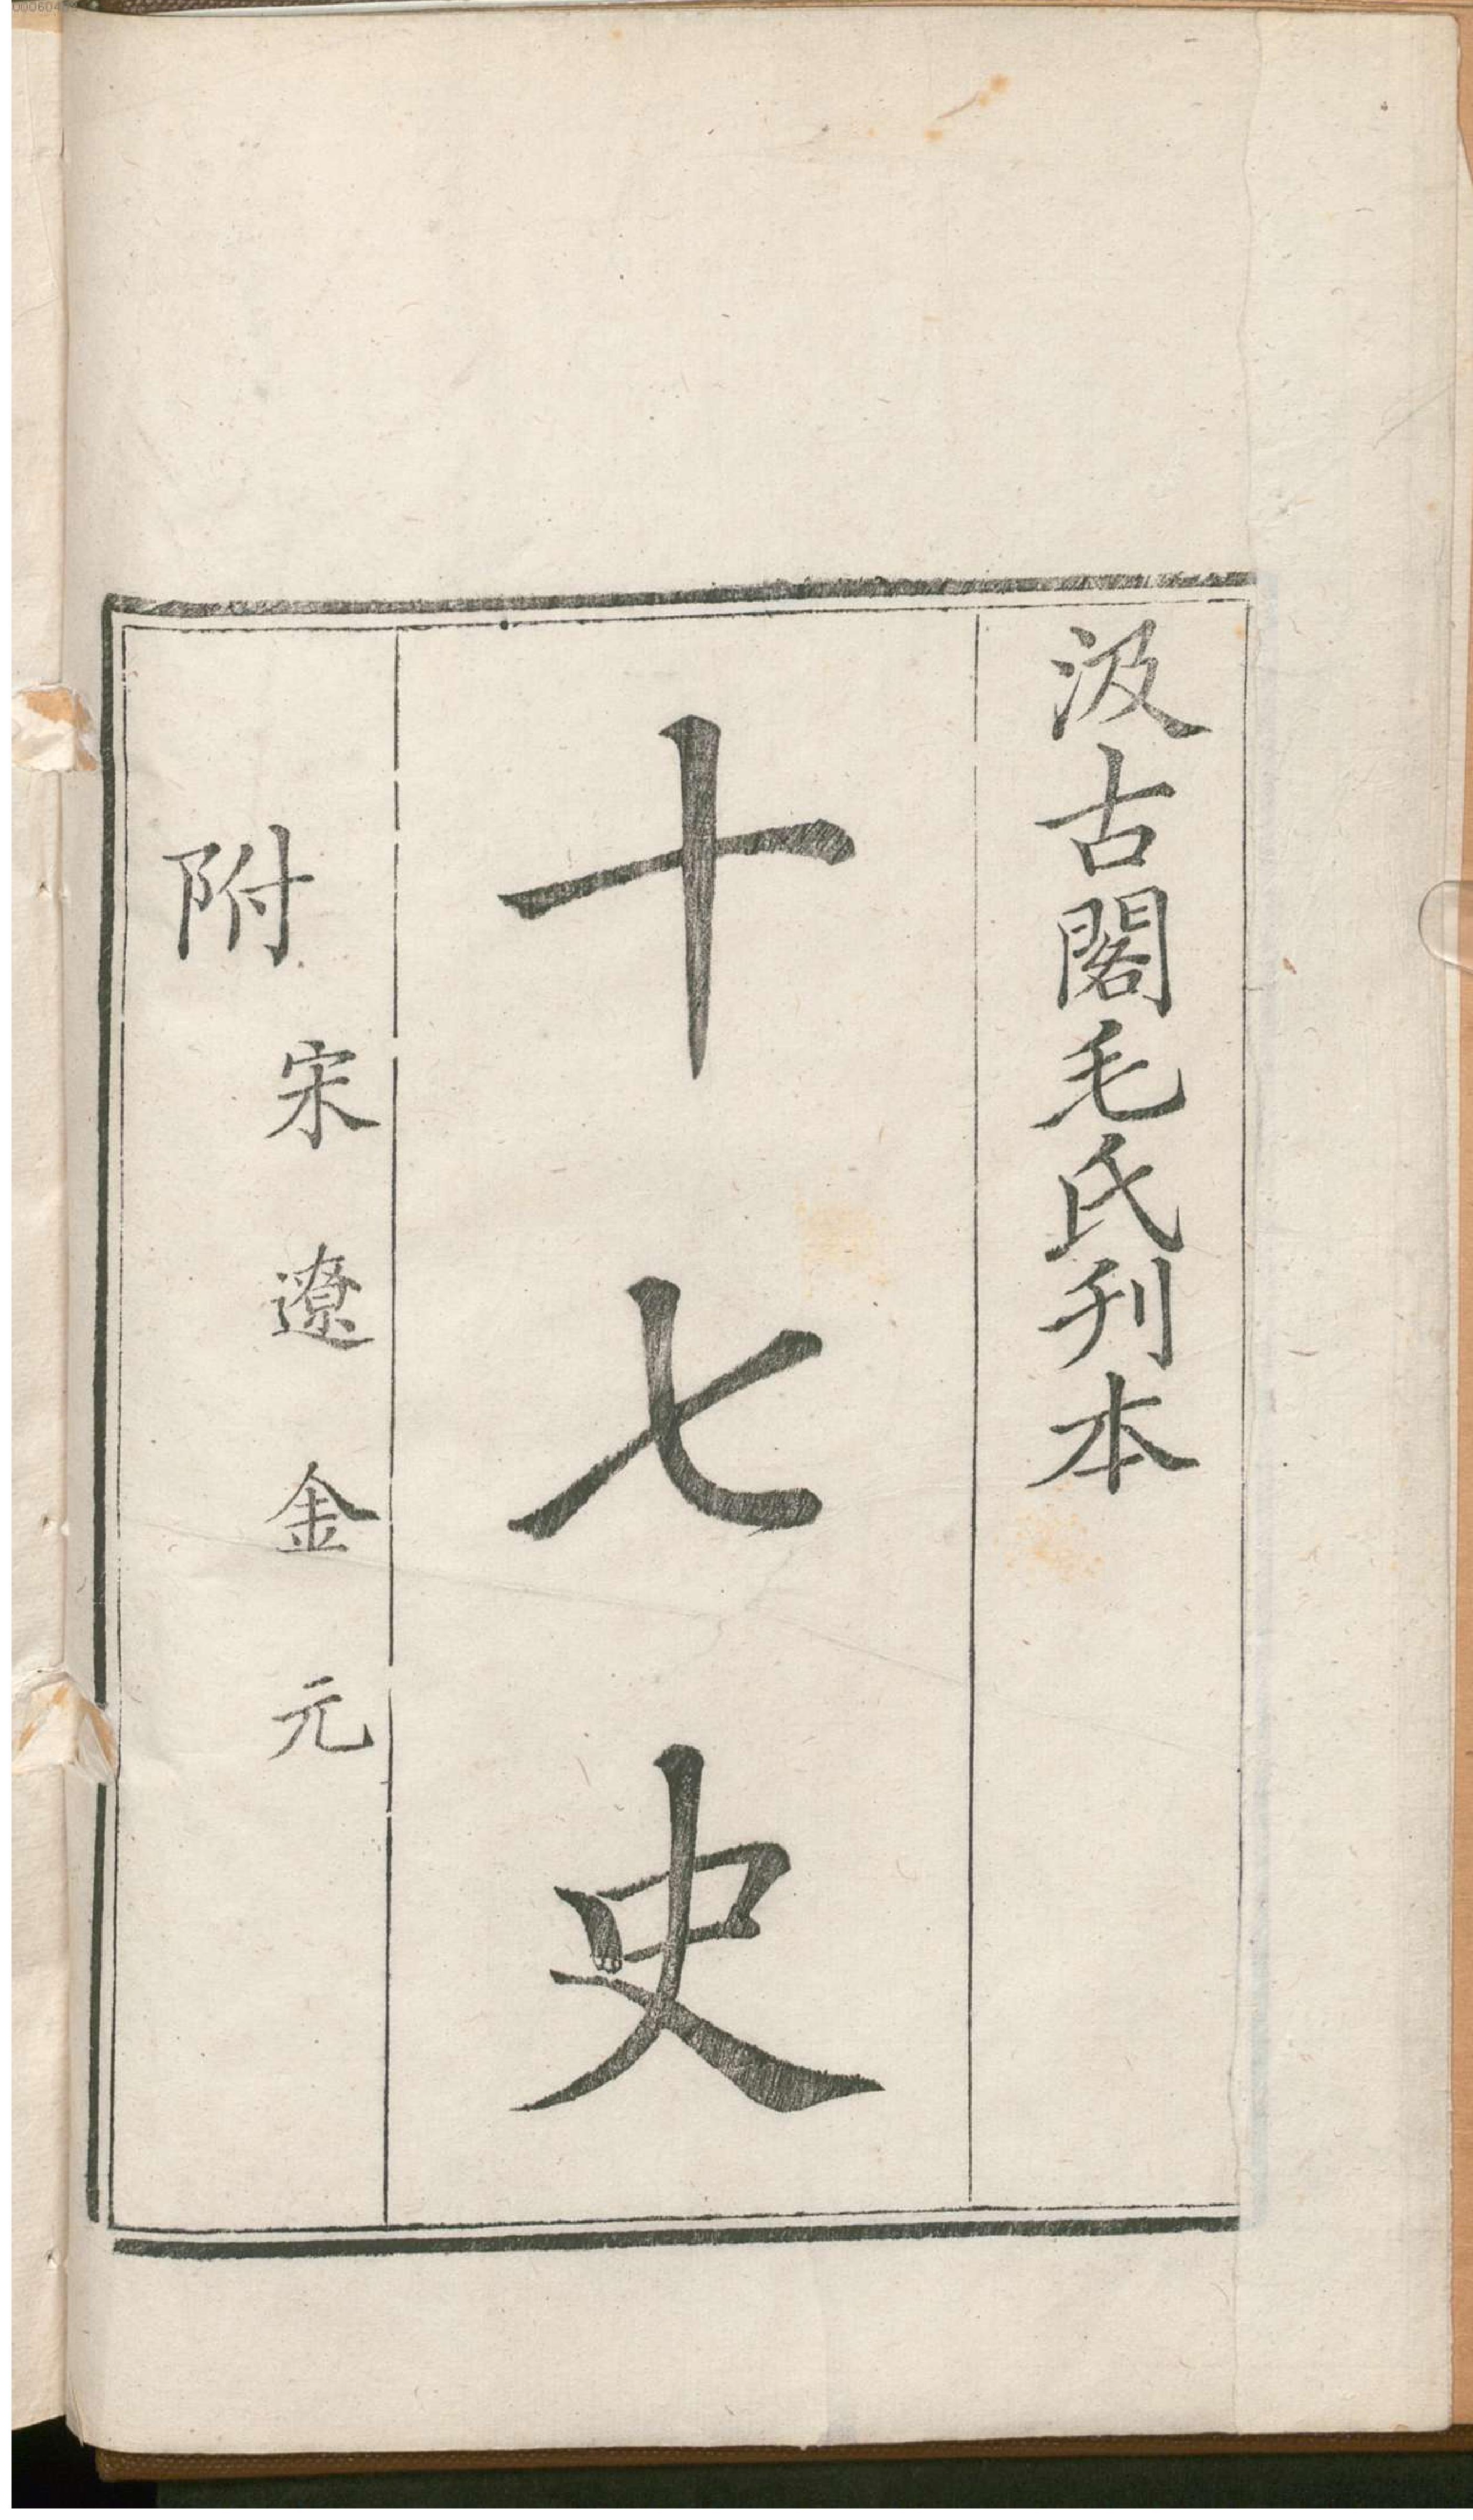 汲古閣毛氏刋本
十七史
附
宋遼金元